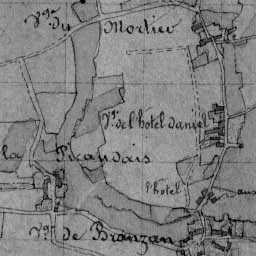 Vge du Mortier
Vge de l'hotel daniel
la Picaudais
l'hotel
Vge de Branzan